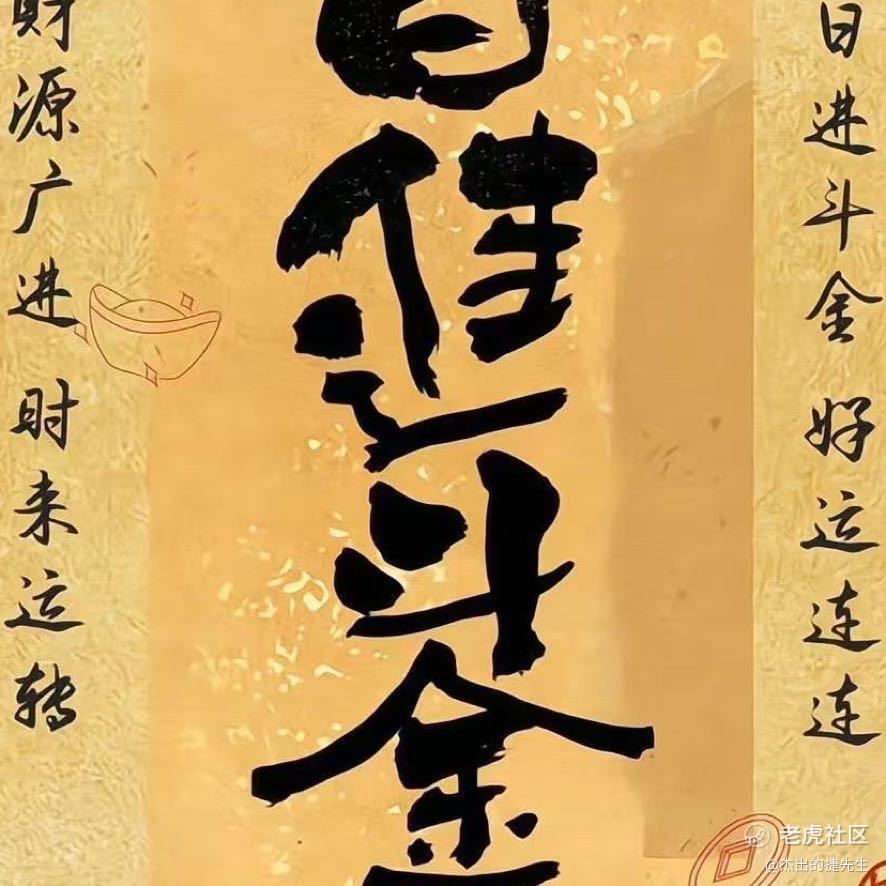 日进斗金 好运连连
日進斗金
财源广进 时来运转
老虎社区
@杰出的捷先生